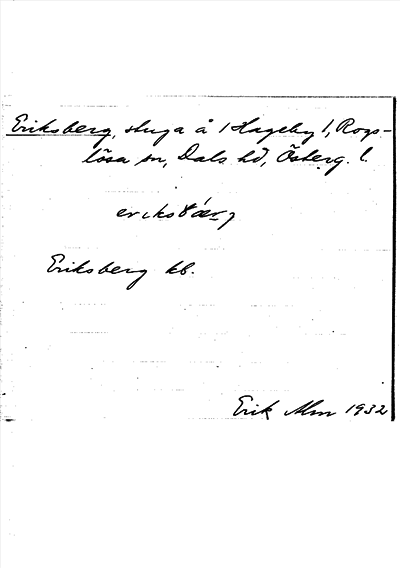 Eriksberg, stuga å 1 Hageby 1, Rogs-
lösa sn, Dals hd, Österg. l.
Eriksberg kb.
Erik Alm 1932